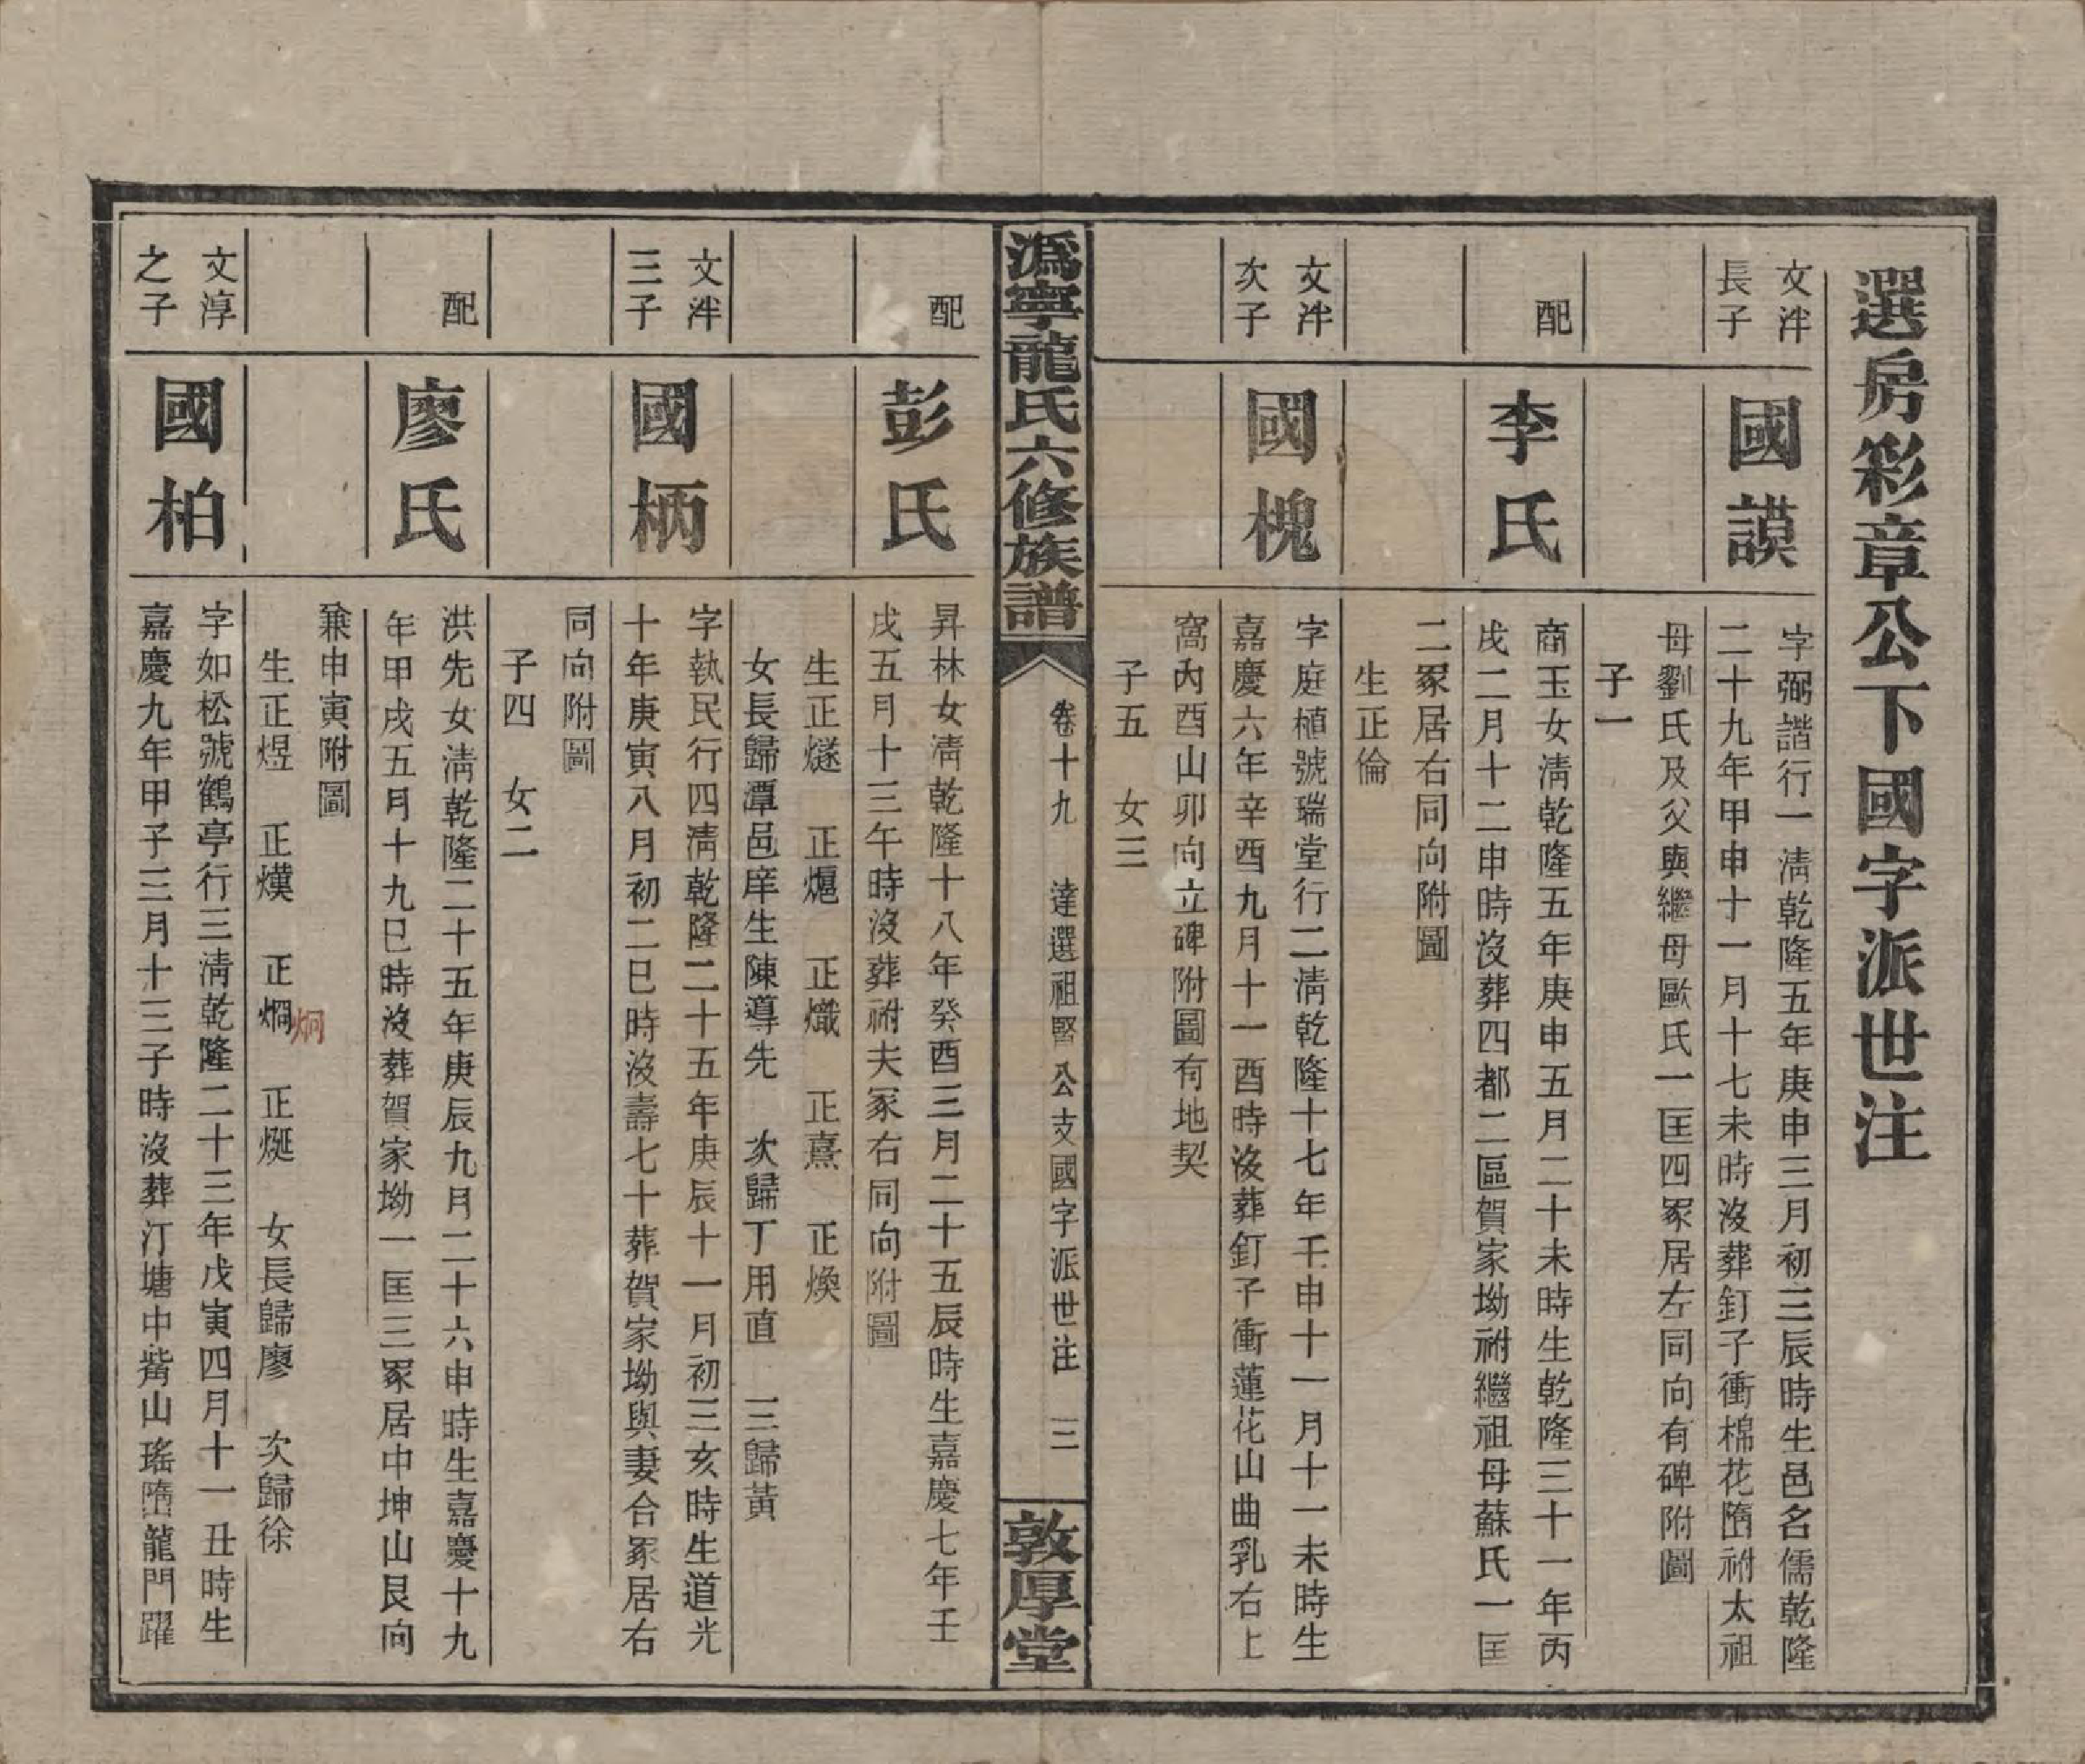 選房彩章公下國字派世注
文泮
長子
國謨
字弼諧行一淸乾隆五年庚申三月初三辰時生邑名儒乾隆
二十九年甲申十一月十七未時沒葬釘子衝棉花隋祔太祖
母劉氏及父與繼母歐氏一匡四冢居左同向有碑附圖
子一
配
李氏
商玉女淸乾隆五年庚申五月二十未時生乾隆三十一年丙
戌二月十二申時沒葬四都二區賀家坳祔繼祖母蘇氏一匡
二冢居右同向附圖
生正倫
文泮
次子
國槐
字庭植號瑞堂行二淸乾隆十七年壬申十一月十一未時生
嘉慶六年辛酉九月十一酉時沒葬釘子衝蓮花山曲乳右上
窩內酉山卯向立碑附圖有地契
子五　女三
溈寧龍氏六修族譜
卷十九　達選祖堅公支國字派世注　三
敦厚堂
配
彭氏
昇林女淸乾隆十八年癸酉三月二十五辰時生嘉慶七年壬
戌五月十三午時沒葬祔夫冢右同向附圖
生正燧　正熴　正熾　正熹　正煥
女長歸潭邑庠生陳導先　次歸丁用直　三歸黃
文泮
三子
國柄
字執民行四淸乾隆二十五年庚辰十一月初三亥時生道光
十年庚寅八月初二巳時沒壽七十葬賀家坳與妻合冢居右
同向附圖
子四　女二
配
廖氏
洪先女淸乾隆二十五年庚辰九月二十六申時生嘉慶十九
年甲戌五月十九巳時沒葬賀家坳一匡三冢居中坤山艮向
兼申寅附圖
生正煜　正熯　正烱　正烻　女長歸廖　次歸徐
炯
文淳
之子
國柏
字如松號鶴亭行三淸乾隆二十三年戊寅四月十一丑時生
嘉慶九年甲子三月十三子時沒葬汀塘中觜山瑤隋龍門躍